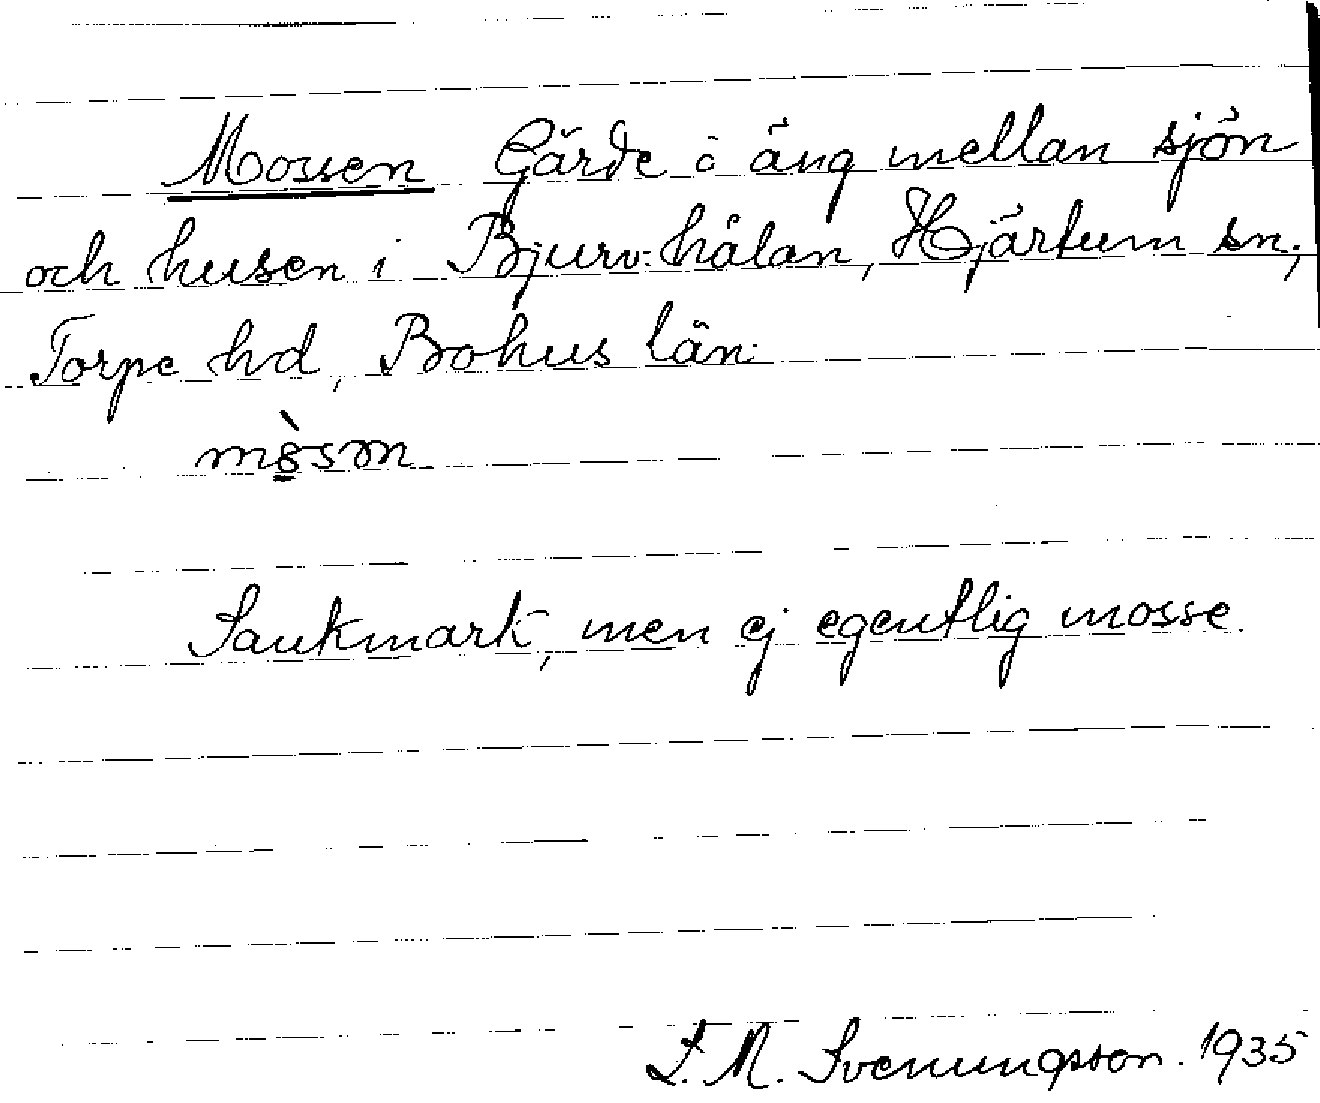 Mossen Gärde å äng mellan sjön
och husen i Bjurv-hålan, Hjärtum sn.,
Torpe hd, Bohus län.
Sankmark, men ej egentlig mosse.
F. M. Svenungsson. 1935